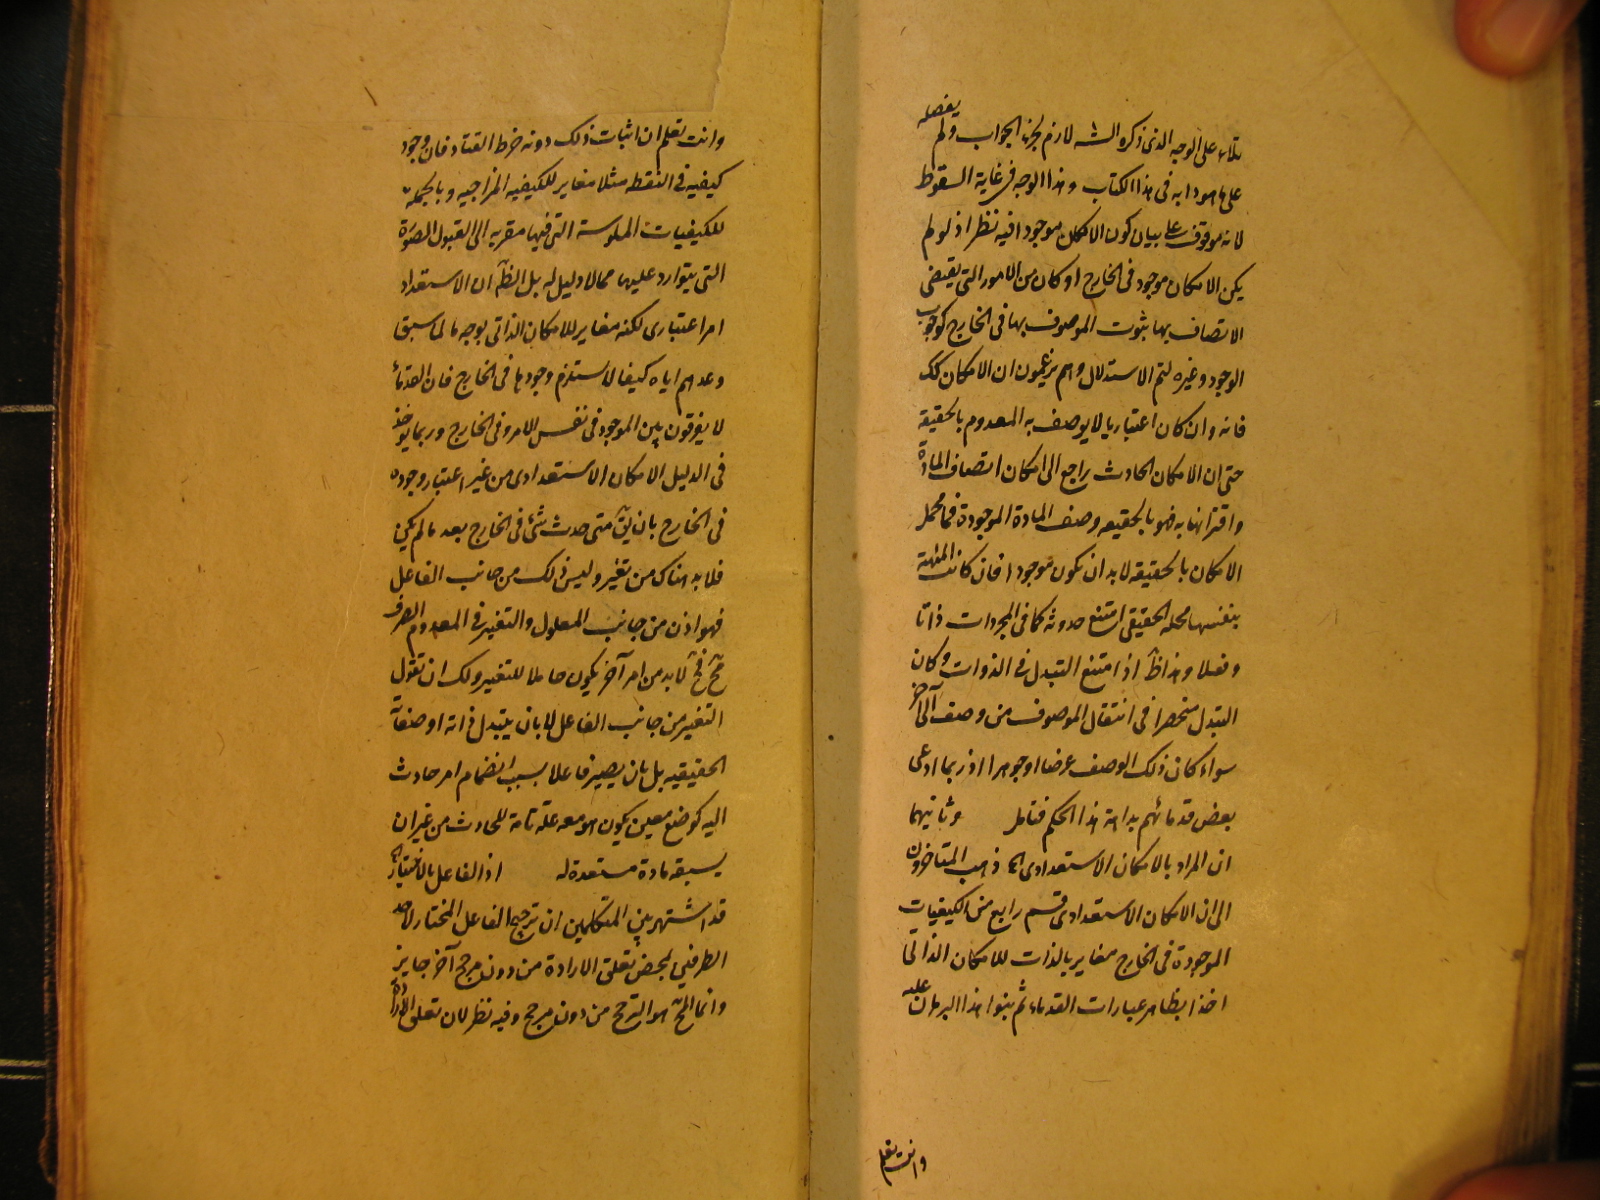 تلاء على الوجه الذى ذكره الشـ لازم لجزء الجواب ولم يفصله
على ما هو دابه فى هذا الكتاب وهذا الوجه فى غاية السقوط
لانه موقوف على بيان كون الامكان موجودا فيه نظر اذ لو لم
يكن الامكان موجود فى الخارج او كان من الامور التى يقتضى
الاتصاف بها ثبوت الموصوف بها فى الخارج كوجوب
الوجود وغيره لتم الاستدلال وهم يزعمون ان الامكان كك
فانه وان كان اعتباريا لا يوصف به المعدوم بالحقيقة
حتى ان الامكان الحادث راجع الى امكان اتصاف المادة
واقترانها به فهو بالحقيقه وصف المادة الموجودة فما محل
الامكان بالحقيقه لا بد ان يكون موجودا فان كانت المهية
بنفسها محله الحقيقى امتنع حدوثه كما فى المجردات ذاتا
وفعلا وهذا ظ اذا امتنع التبدل فى الذوات وكان
التبدل منحصرا فى انتقال الموصوف من وصف الى آخر
سواء كان ذلك الوصف عرضا او جوهرا اذ ربما ادعى
بعض قدمائهم بداهة هذا الحكم فتامل وثانيهما
ان المراد بالامكان الاستعدادى ذهب المتاخرون
الى ان الامكان الاستعدادى قسم رابع من الكيفيات
الموجودة فى الخارج مغاير بالذات للامكان الذاتى
اخذا بظاهر عبارات القدماء ثم بنوا هذا البرهان عليه
وانت تعلم
وانت تعلم ان اثبات ذلك دونه خرط القتاد فان وجود
كيفيه فى النقطه مثلا مغاير للكيفيه المزاجيه وبالجمله
للكيفيات الملموسة التى فيها مقربه الى القبول الصورة
التى يتوارد عليها مما لا دليل له بل الظ ان الاستعداد
امر اعتبارى لكنه مغاير للامكان الذاتى بوجه ما لما سبق
وعدهم اياه كيفا لا يستلزم وجودها فى الخارج فان القدماء
لا يفرقون بين الموجود فى نفس الامر وفى الخارج وربما يوخذ
فى الدليل الامكان الاستعدادى من غير اعتبار وجوده
فى الخارج بان يق متى حدث شئ فى الخارج بعد ما لم يكن
فلا بد هناك من تغير وليس ذلك من جانب الفاعل
فهو اذن من جانب المعلول والتغير فى المعدوم الصرف
مح فح لا بد من امر آخر يكون حاملا للتغير ولك ان تقول
التغير من جانب الفاعل لا بان يتبدل ذاته او صفاته
الحقيقيه بل بان يصير فاعلا بسبب انضمام امر حادث
اليه كوضع معين يكون هو معه علة تامة للحادث من غير ان
يسبقه مادة مستعدة له اذ الفاعل بالاختيار
قد اشتهر بين المتكلمين ان ترجيح الفاعل المختار لاحد
الطرفين لمحض تعلق الارادة من دون مرجح آخر جايز
وانما المح هو الترجح من دون مرجح وفيه نظر لان تعلق الارادة